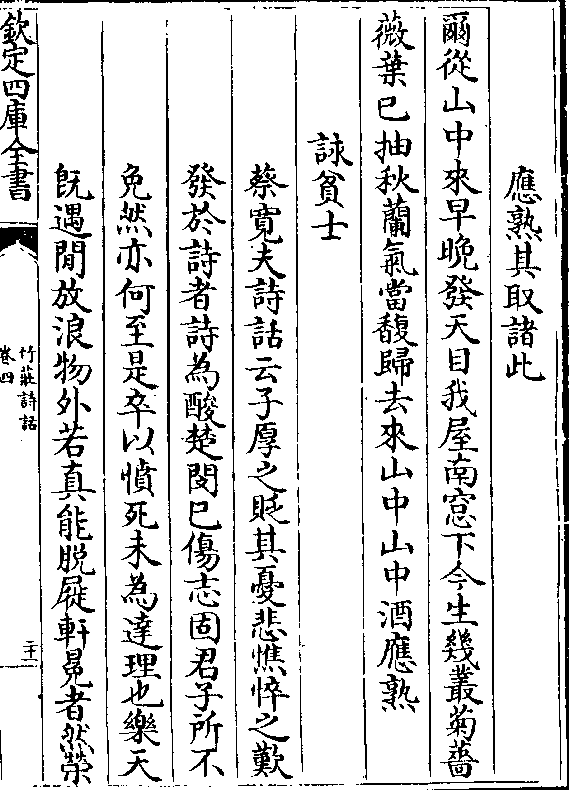 應熟其取諸此
爾從山中來早晚發天目我屋南窓下今生幾叢菊薔
薇葉已抽秋蘭氣當馥歸去來山中山中酒應熟
詠貧士
蔡寛夫詩話云子厚之貶其憂悲憔悴之歎
發於詩者詩為酸楚閔已傷志固君子所不
免然亦何至是卒以憤死未為達理也樂天
旣遇閒放浪物外若真能脱屣軒冕者然榮
欽定四庫全書
竹莊詩話
卷四
二十一